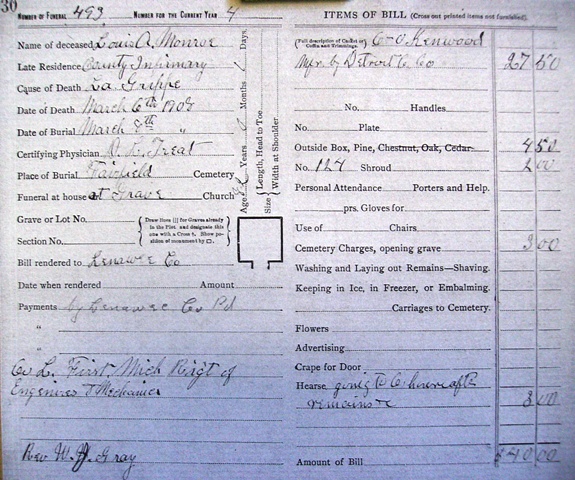 30
NUMBER OF FUNERAL 493 NUMBER FOR THE CURRENT YEAR 4
Name of deceased Louis A. Monroe
Late Residence County Infirmary
Cause of Death La Grippe
Date of Death March 6th 1908
Date of Burial March 8th "
Certifying Physician Treat
Place of Burial Fairfield Cemetery
Funeral at house at Grave Church
Age Years Months Days.
Size { Length, Head to Toe
Width at Shoulder.
Grave or Lot No.
Section No.
{ Draw lines ||| for Graves already in the Plot and designate this one with a Cross †. Show position of monument by □. }
Bill rendered to Lenawee Co
Date when rendered Amount
Payments by Lenawee Co Pd
"
"
Co L. First, Mich Rigt of
Engenires & Mechanics
Rev W. J. Gray
ITEMS OF BILL (Cross out printed items not furnished).
{ Full description of Casket or Coffin and Trimmings. } Kenwood
Mfr. by Detroit Co 27 50
No. Handles.
No. Plate
Outside Box, Pine, Chestnut, Oak, Cedar 4 50
No. 124 Shroud 2 00
Personal Attendance Porters and Help.
prs. Gloves for
Use of Chairs
Cemetery Charges, opening grave 3 00
Washing and Laying out Remains—Shaving.
Keeping in Ice, in Freezer, or Embalming.
Carriages to Cemetery.
Flowers
Advertising
Crape for Door
Hearse going to house after
remains 3 00
Amount of Bill $40 00